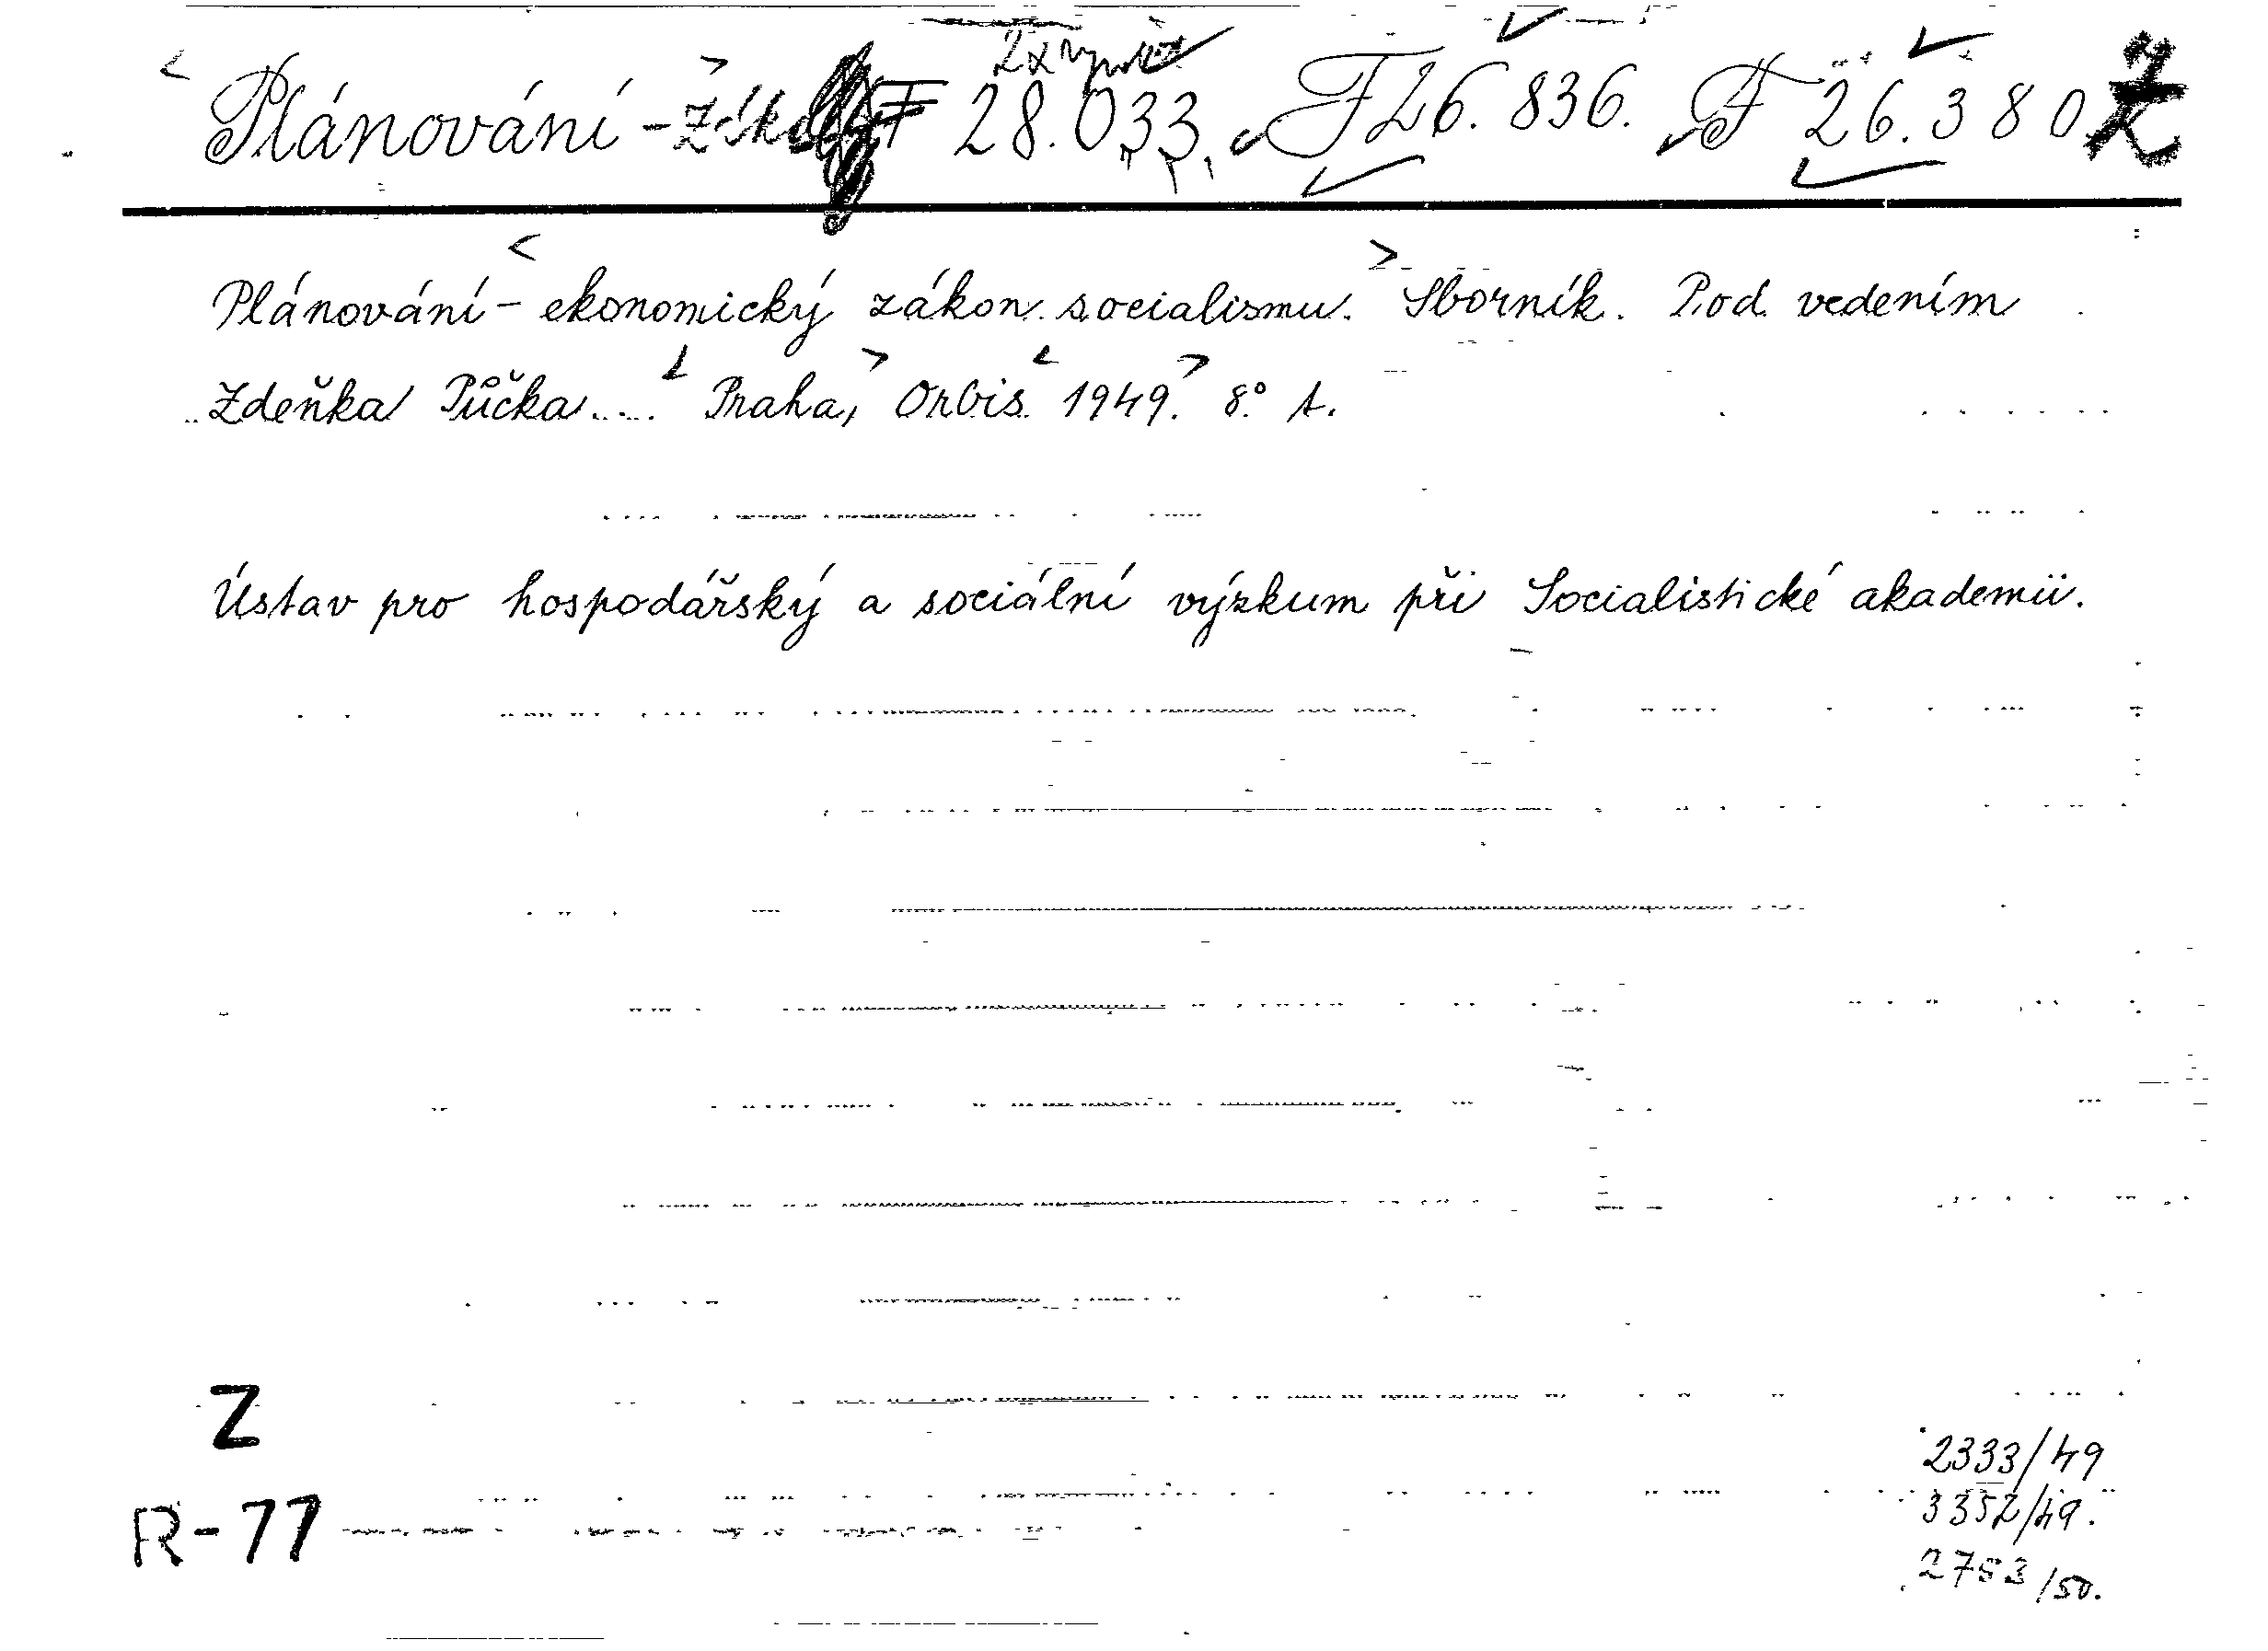 2x
Plánování - F 28.033, F 26.836. F 26.380
Plánování - ekonomický zákon socialismu. Sborník. Pod vedením
Zdeňka Půčka.... Praha, Orbis 1949. 8° s.
Ústav pro hospodářský a sociální výzkum při Socialistické akademii.
Z
2333/49
R-77 3352/49.
2753/50.